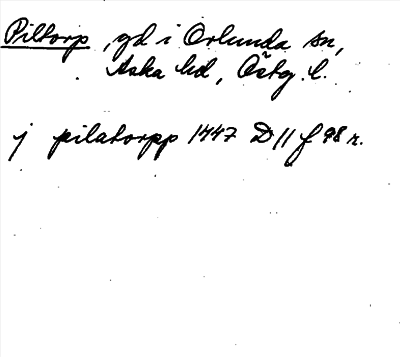 Piltorp, gd i Orlunda sn,
Aska hd, Östg. l.
j pilatorpp 1447 D 11 f 98 r.